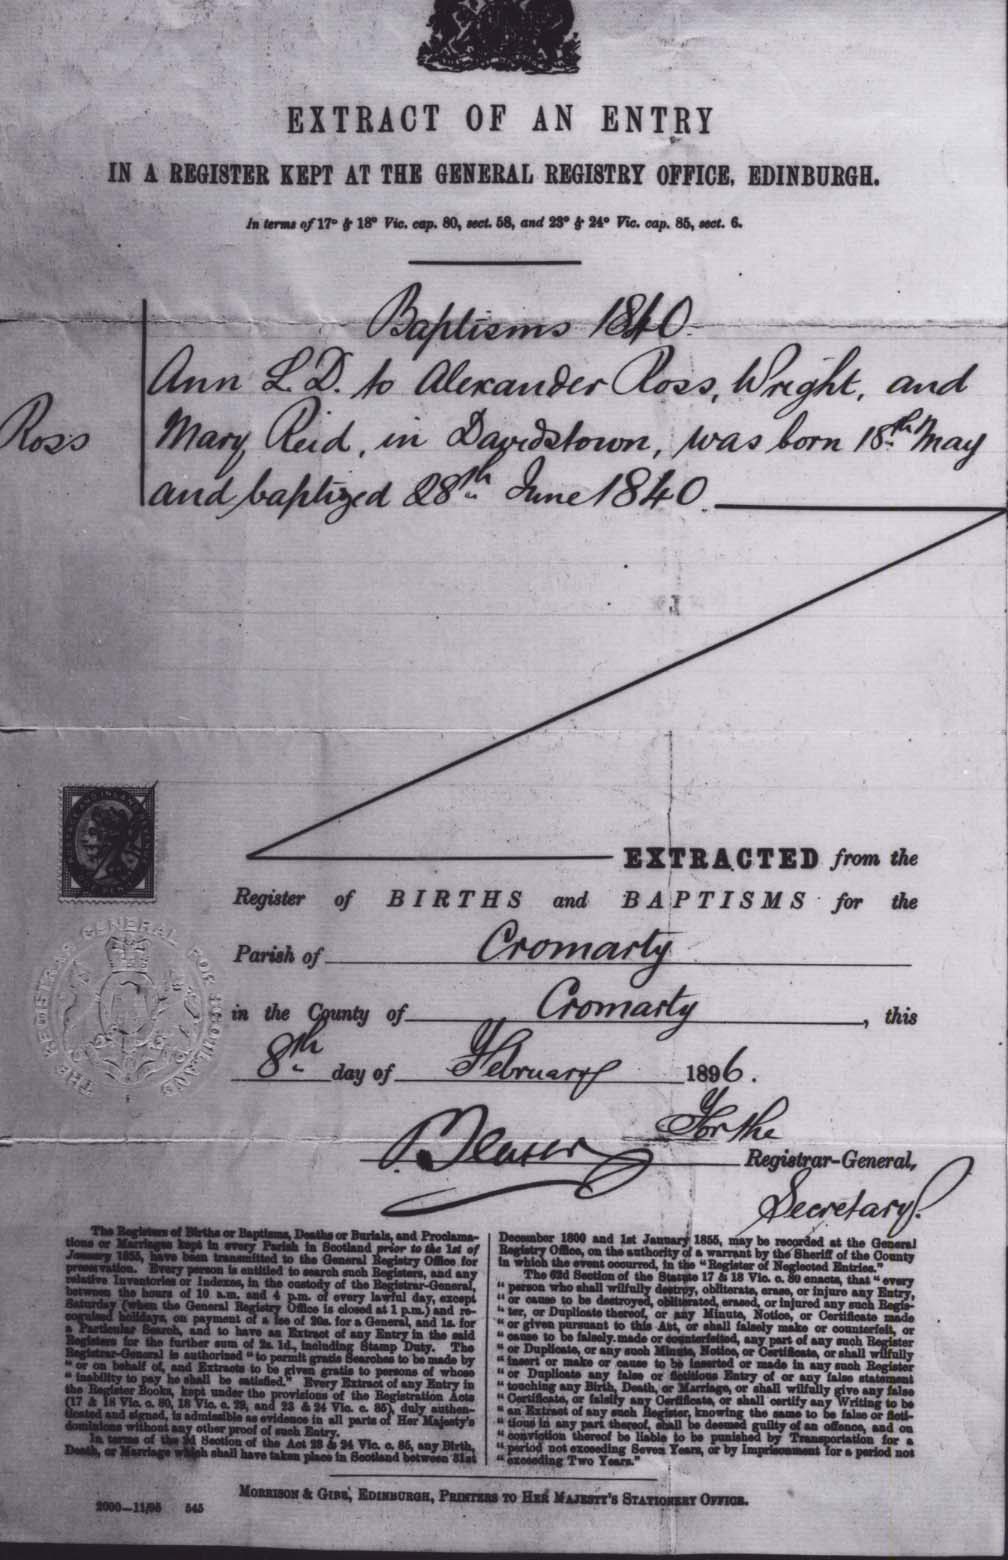 EXTRACT OF AN ENTRY
IN A REGISTER KEPT AT THE GENERAL REGISTRY OFFICE, EDINBURGH.
In terms of 17° & 18° Vic. cap. 80, sect. 58, and 23° & 24° Vic. cap. 85, sect. 6.
Baptisms 1840.
Ann L. D. to Alexander Ross, Wright, and
Ross
Mary Reid, in Davidstown, was born 18th May
and baptized 28th June 1840.
EXTRACTED from the
Register of BIRTHS and BAPTISMS for the
Parish of Cromarty
in the County of Cromarty, this
8th day of February 1896.
For the
Registrar-General,
Secretary.
THE REGISTRAR GENERAL FOR SCOTLAND
The Registers of Births or Baptisms, Deaths or Burials, and Proclama-
tions or Marriages kept in every Parish in Scotland prior to the 1st of
January 1855, have been transmitted to the General Registry Office for
preservation. Every person is entitled to search such Registers, and any
relative Inventories or Indexes, in the custody of the Registrar-General,
between the hours of 10 a.m. and 4 p.m. of every lawful day, except
Saturday (when the General Registry Office is closed at 1 p.m.) and re-
cognised holidays, on payment of a fee of 20s. for a General, and 1s. for
a Particular Search, and to have an Extract of any Entry in the said
Registers for the further sum of 2s. 1d., including Stamp Duty. The
Registrar-General is authorised "to permit gratis Searches to be made by
" or on behalf of, and Extracts to be given gratis to persons of whose
" inability to pay he shall be satisfied." Every Extract of any Entry in
the Register Books, kept under the provisions of the Registration Acts
(17 & 18 Vic. c. 80, 18 Vic. c. 29, and 23 & 24 Vic. c. 85), duly authen-
ticated and signed, is admissible as evidence in all parts of Her Majesty's
dominions without any other proof of such Entry.
In terms of the 2d Section of the Act 23 & 24 Vic. c. 85, any Birth,
Death, or Marriage which shall have taken place in Scotland between 31st
December 1800 and 1st January 1855, may be recorded at the General
Registry Office, on the authority of a warrant by the Sheriff of the County
in which the event occurred, in the "Register of Neglected Entries."
The 62d Section of the Statute 17 & 18 Vic. c. 80 enacts, that "every
" person who shall wilfully destroy, obliterate, erase, or injure any Entry,
" or cause to be destroyed, obliterated, erased, or injured any such Regis-
" ter, or Duplicate thereof, or any Minute, Notice, or Certificate made
" or given pursuant to this Act, or shall falsely make or counterfeit, or
" cause to be falsely made or counterfeited, any part of any such Register
" or Duplicate, or any such Minute, Notice, or Certificate, or shall wilfully
" insert or make or cause to be inserted or made in any such Register
" or Duplicate any false or fictitious Entry of or any false statement
" touching any Birth, Death, or Marriage, or shall wilfully give any false
" Certificate, or falsify any Certificate, or shall certify any Writing to be
" an Extract of any such Register, knowing the same to be false or ficti-
" tious in any part thereof, shall be deemed guilty of an offence, and on
" conviction thereof be liable to be punished by Transportation for a
" period not exceeding Seven Years, or by Imprisonment for a period not
" exceeding Two Years."
MORRISON & GIBB, EDINBURGH, PRINTERS TO HER MAJESTY'S STATIONERY OFFICE.
2000—11/95 545